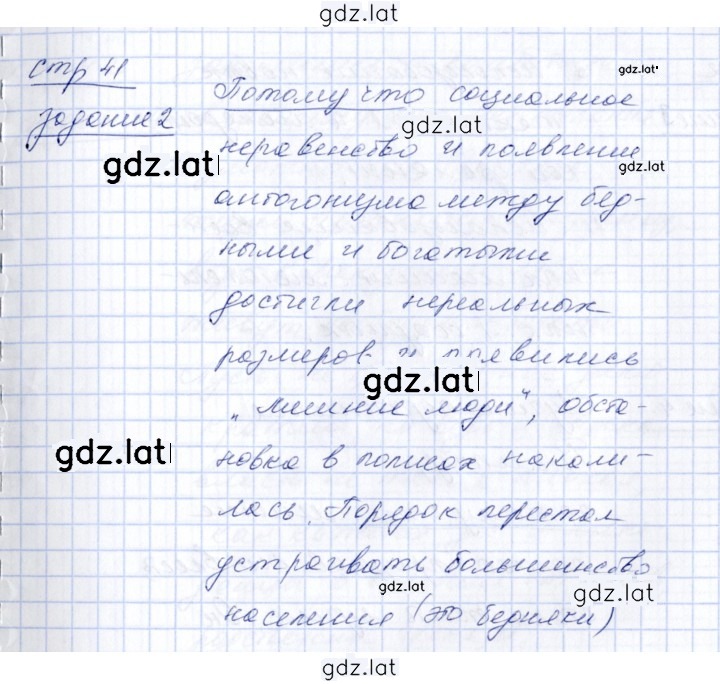 gdz.lat
стр 41
gdz.lat
Потому что социальное
задание 2
gdz.lat
неравенство и появление
gdz.lat
антогонизма между бед-
ными и богатыми
достигли нереальных
размеров и появились
gdz.lat
„лишние люди", обста-
gdz.lat
новка в полисах накали-
лась. Порядок перестал
устраивать большинство
gdz.lat
gdz.lat
населения (это бедняки)
gdz.lat